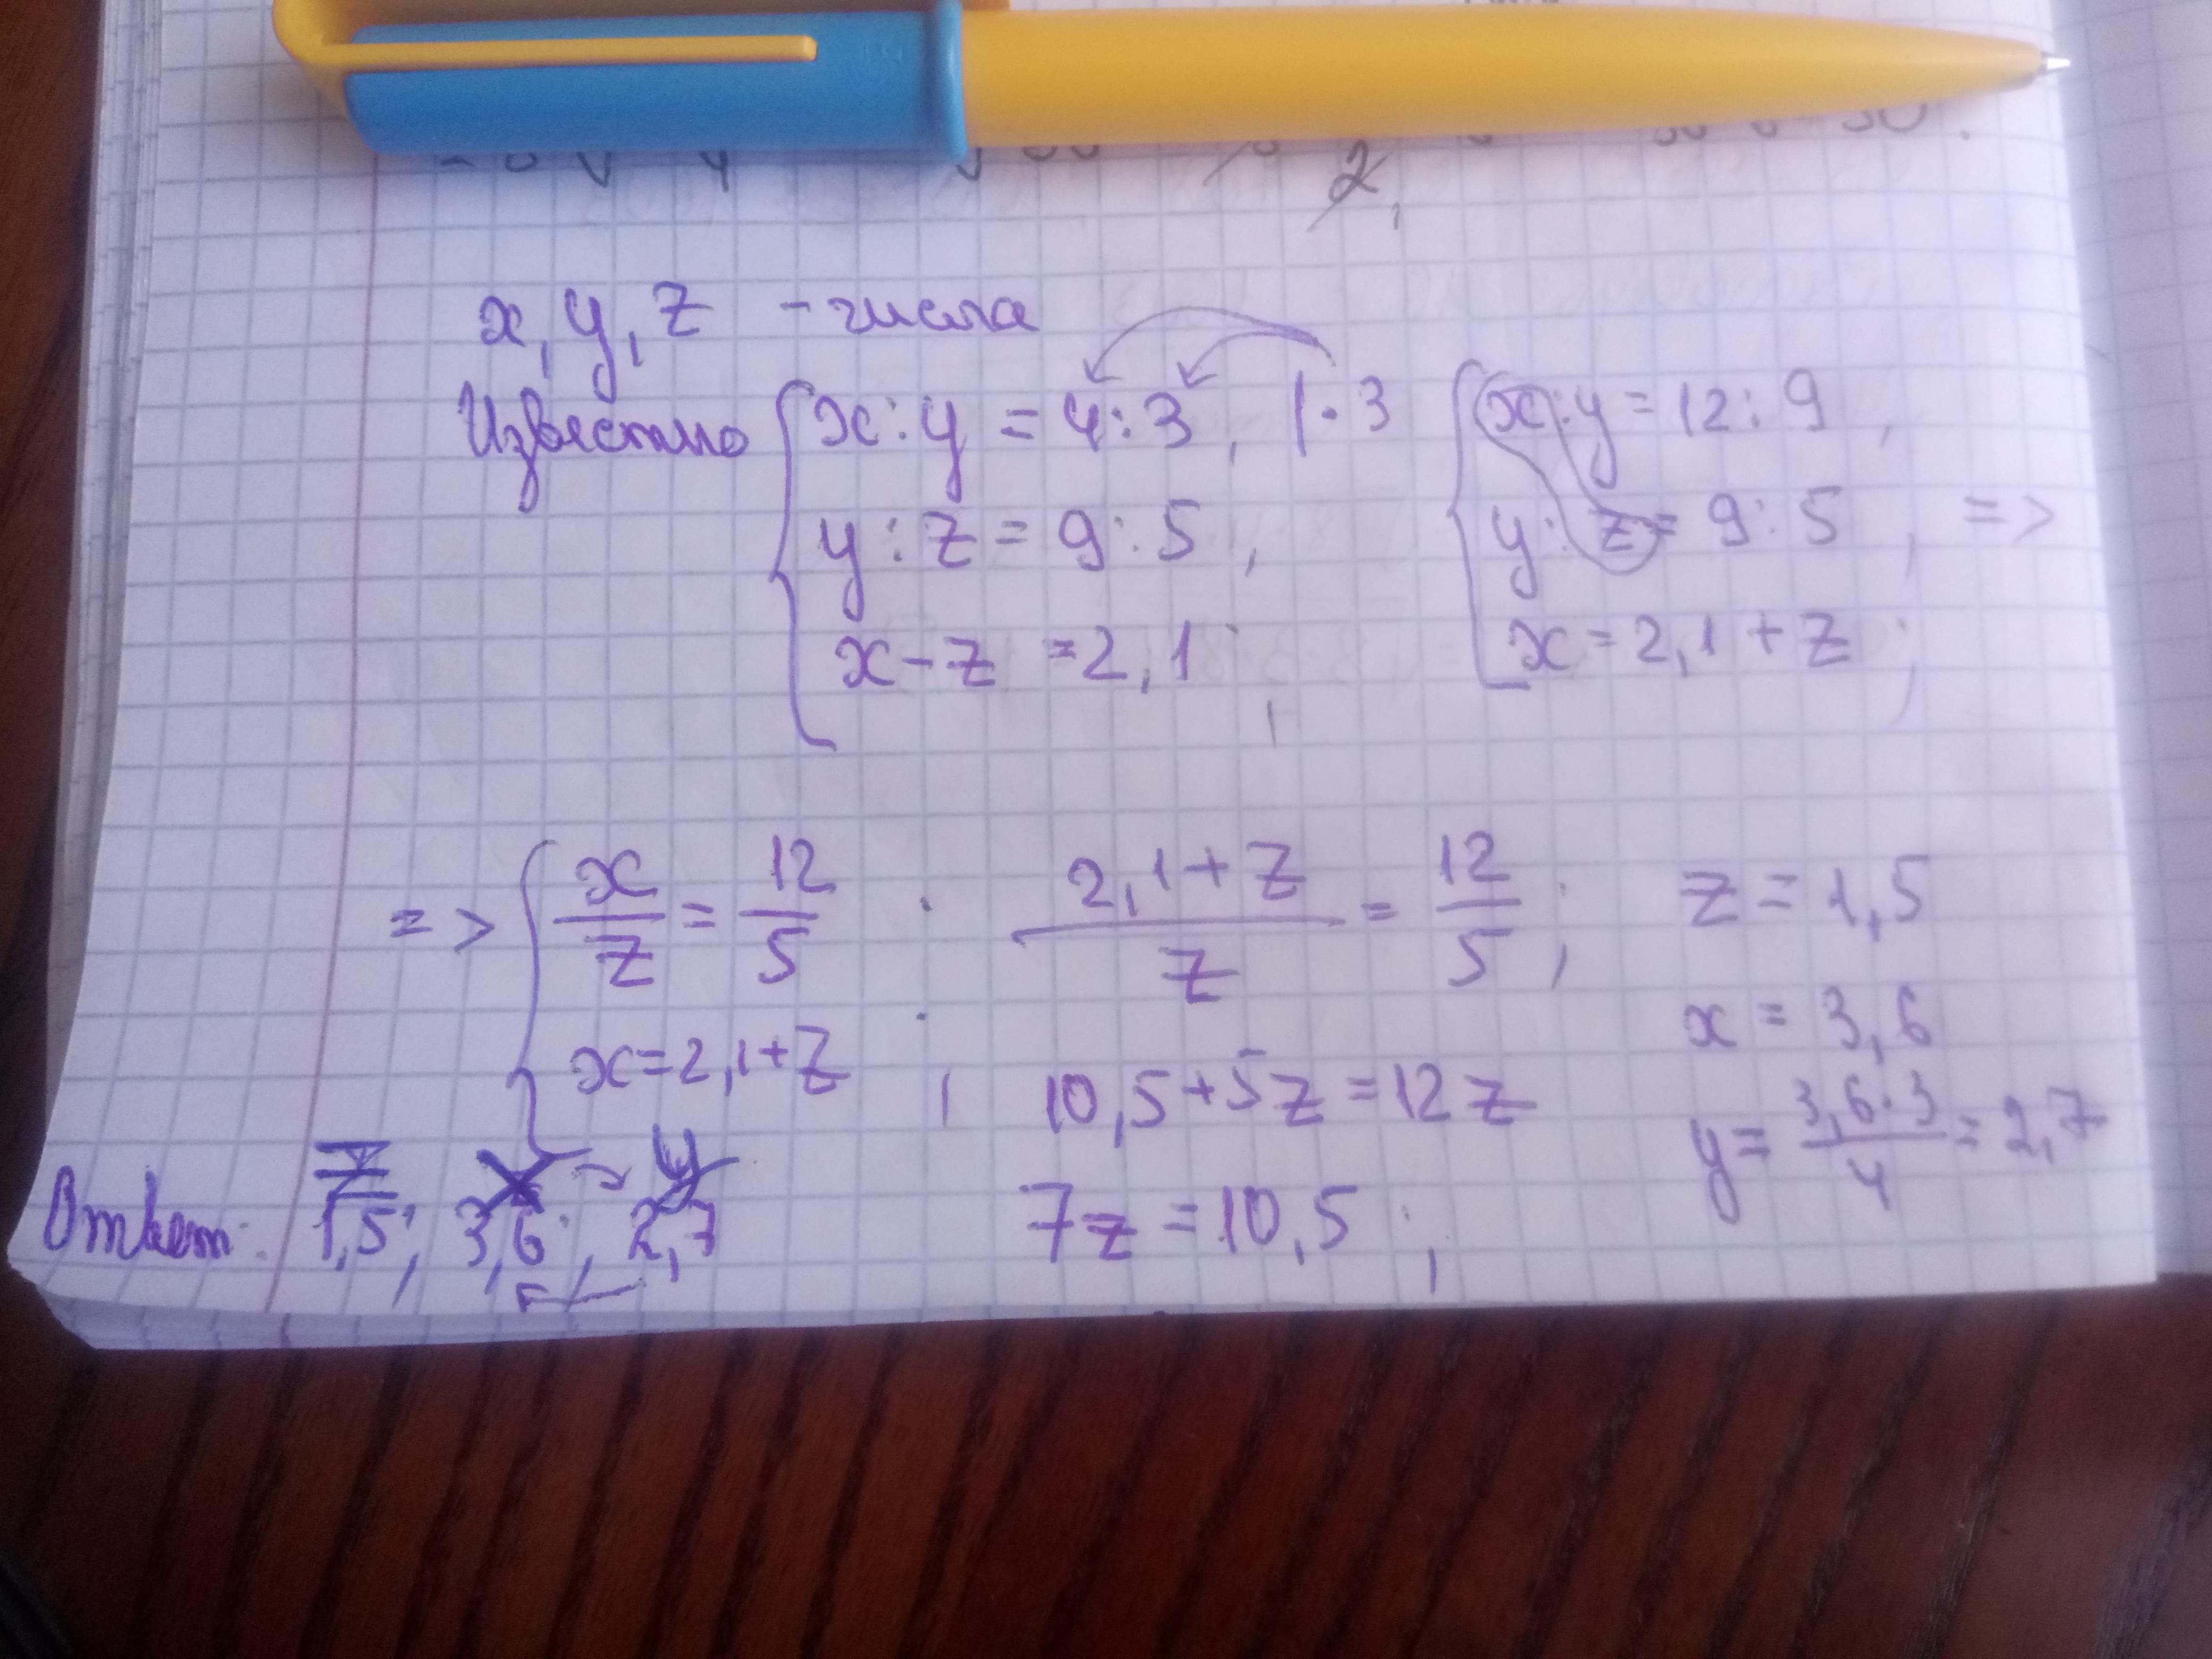 x, y, z - числа
Известно { x : y = 4 : 3, | · 3
y : z = 9 : 5,
x - z = 2,1;
{ x : y = 12 : 9,
y : z = 9 : 5, =>
x = 2,1 + z;
=> { x/z = 12/5;
x = 2,1 + z;
(2,1 + z)/z = 12/5;
10,5 + 5z = 12z
7z = 10,5;
z = 1,5
x = 3,6
y = (3,6 · 3)/4 = 2,7
z x y
Ответ: 1,5; 3,6; 2,7